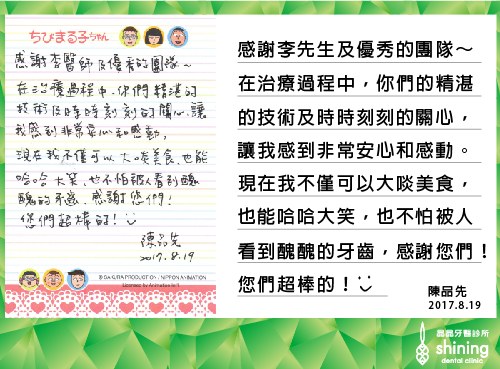 ちびまる子ちゃん
感謝李醫師及優秀的團隊~
在治療過程中,你們精湛的
技術及時時刻刻的關心,讓
我感到非常安心和感動。
現在我不僅可以大啖美食,也能
哈哈大笑,也不怕被人看到醜
醜的牙齒,感謝您們!
您們超棒的!
陳品先
2017.8.19
© SAKURA PRODUCTION / NIPPON ANIMATION
感謝李先生及優秀的團隊~
在治療過程中,你們的精湛
的技術及時時刻刻的關心,
讓我感到非常安心和感動。
現在我不僅可以大啖美食,
也能哈哈大笑,也不怕被人
看到醜醜的牙齒,感謝您們!
您們超棒的!
陳品先
2017.8.19
晶晶牙醫診所
shining
dental clinic